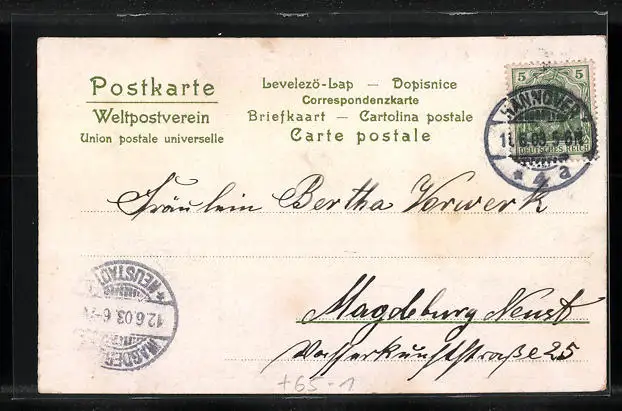 Postkarte
Weltpostverein
Union postale universelle
Levelező-Lap — Dopisnice
Correspondenzkarte
Briefkaart — Cartolina postale
Carte postale
5 5
DEUTSCHES REICH
HANNOVER
* 4 a
Fräulein Bertha Vorwerk
Magdeburg Neust
Wasserkunststraße 25
NEUSTADT
12.6.03.
MAGDEB
+65-1